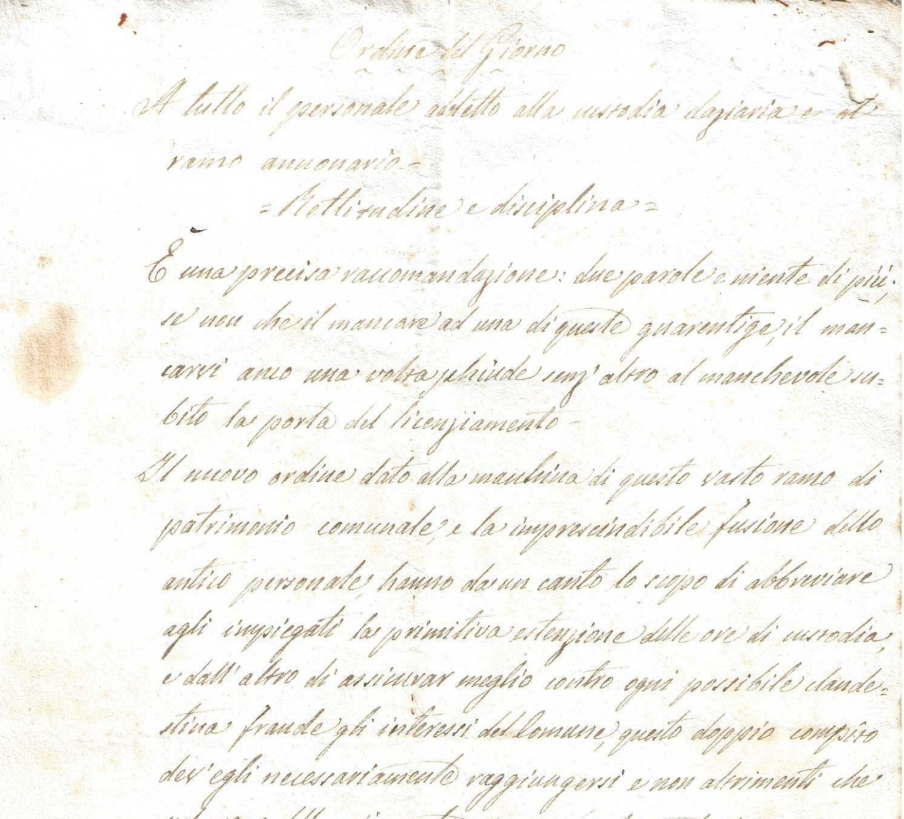 Ordine del Giorno
A tutto il personale addetto alla custodia daziaria ed al
ramo annonario =
= Rettitudine e disciplina =
È una precisa raccomandazione: due parole e niente di più;
se non che il mancare ad una di queste guarentige, il man=
carvi anco una volta schiude senz'altro al manchevole su=
bito la porta del licenziamento -
Il nuovo ordine dato alla macchina di questo vasto ramo di
patrimonio comunale, e la imprescindibile fusione dello
antico personale, hanno da un canto lo scopo di abbreviare
agli impiegati la primitiva estenzione delle ore di custodia,
e dall'altro di assicurar meglio contro ogni possibile clande=
stina fraude gli interessi del Comune, questo doppio compito
dev'egli necessariamente raggiungersi e non altrimenti che